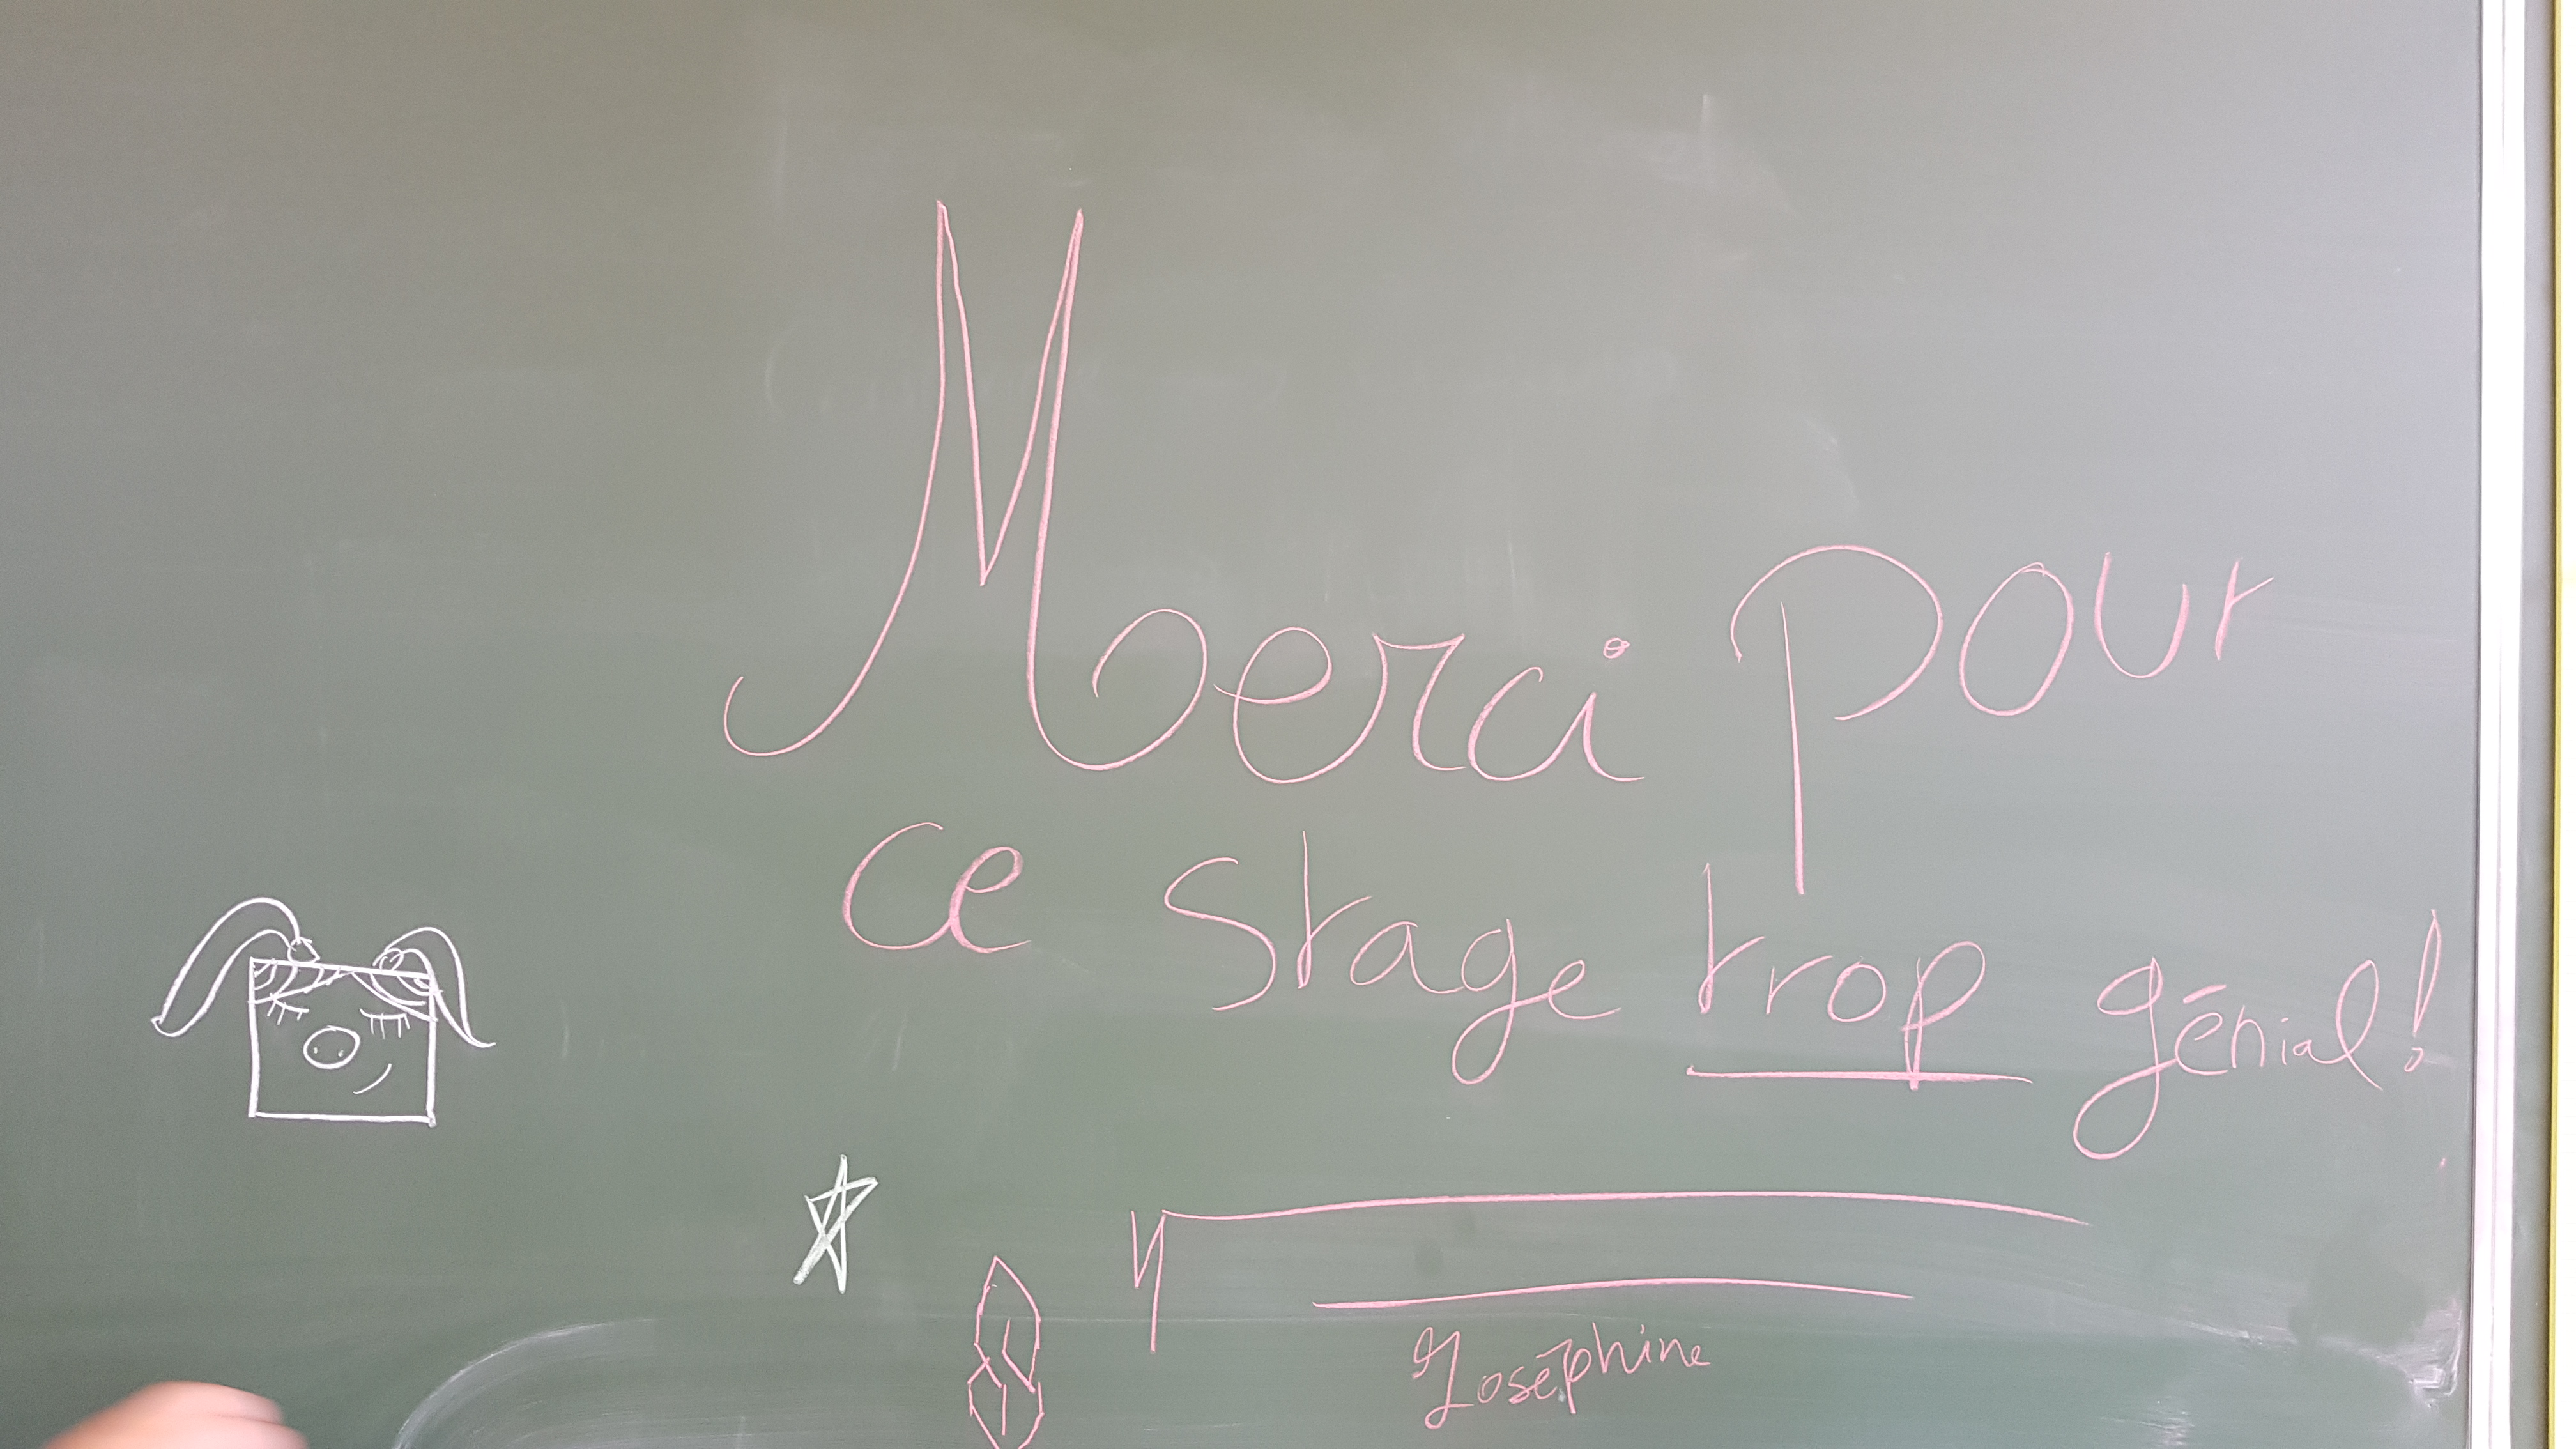 Merci pour
ce stage trop génial!
Joséphine